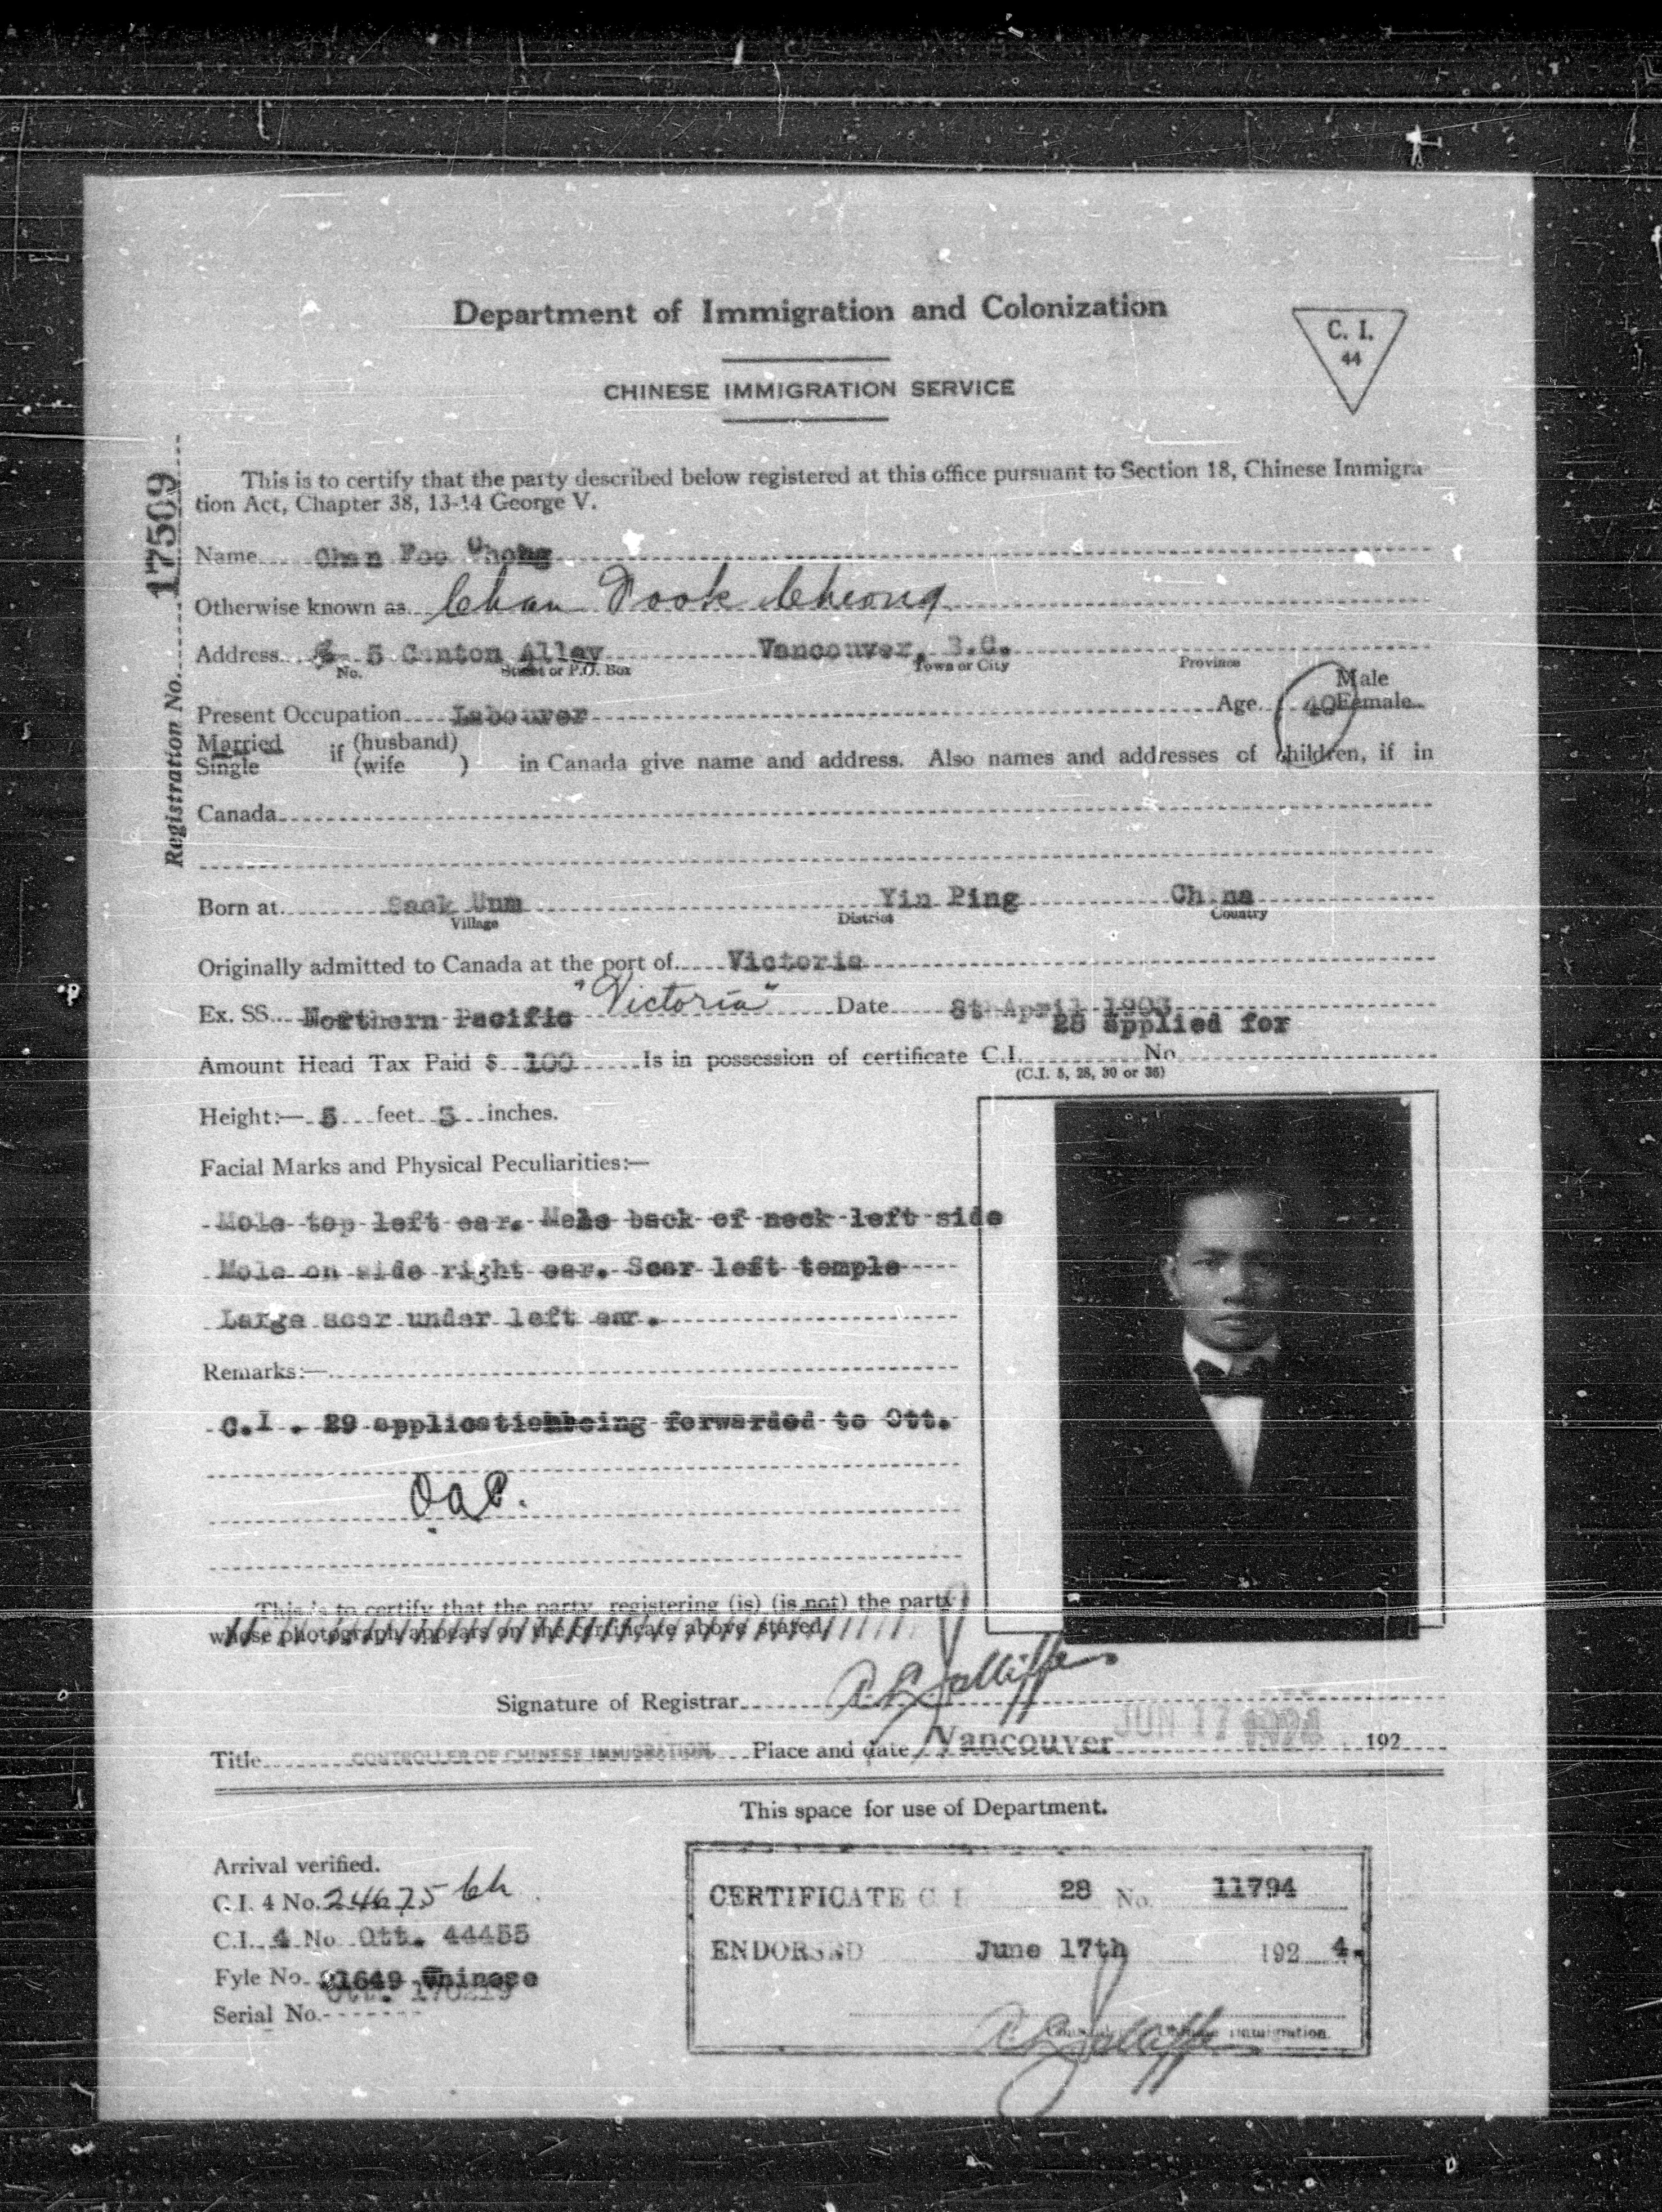 Department of Immigration and Colonization
C. I.
44
CHINESE IMMIGRATION SERVICE
This is to certify that the party described below registered at this office pursuant to Section 18, Chinese Immigra-
tion Act, Chapter 38, 13-14 George V.
Registration No. 17509
Name Chan Foo Chong
Otherwise known as Chan Fook Cheong
Address 5 Canton Alley Vancouver, B.C.
No. Street or P.O. Box Town or City Province
Male
Present Occupation Labourer Age 40 Female
Married if (husband)
Single (wife ) in Canada give name and address. Also names and addresses of children, if in
Canada
Born at Sack Unm Yin Ping China
Village District Country
Originally admitted to Canada at the port of Victoria
Ex. SS. Northern Pacific "Victoria" Date 8t April 1903
28 applied for
Amount Head Tax Paid $ 100 Is in possession of certificate C.I. No
(C.I. 5, 28, 30 or 36)
Height:— 5 feet 3 inches.
Facial Marks and Physical Peculiarities:—
Mole top left ear. Mole back of neck left side
Mole on side right ear. Scar left temple
Large scar under left ear.
Remarks:—
C.I. 29 application being forwarded to Ott.
This is to certify that the party registering (is) (is not) the party
whose photograph appears on the certificate above stated
Signature of Registrar
Title CONTROLLER OF CHINESE IMMIGRATION Place and date Vancouver JUN 17 1924 192
This space for use of Department.
Arrival verified.
C.I. 4 No. 24675
C.I. 4 No Ott. 44455
Fyle No. Chinese
Serial No.
CERTIFICATE C. I. 28 No. 11794
ENDORSED June 17th 192 4.
Immigration.